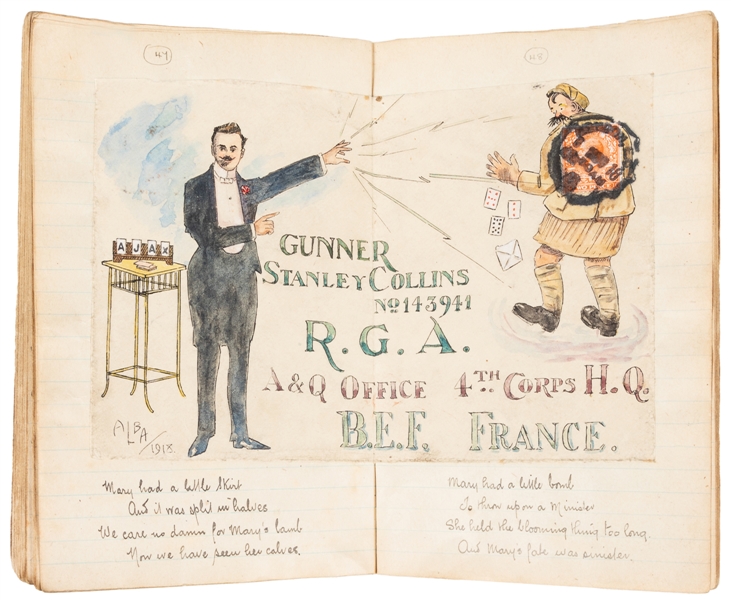 47
48
AJAX
GUNNER
STANLEY COLLINS
No 143941
R.G.A.
A & Q OFFICE 4TH CORPS H.Q.
B.E.F. FRANCE.
ALBA/1918.
Mary had a little skirt
And it was split in halves
We care no damn for Mary's lamb
Now we have seen her calves.
Mary had a little bomb
To throw upon a Minister
She held the blooming thing too long.
And Mary's fate was sinister.